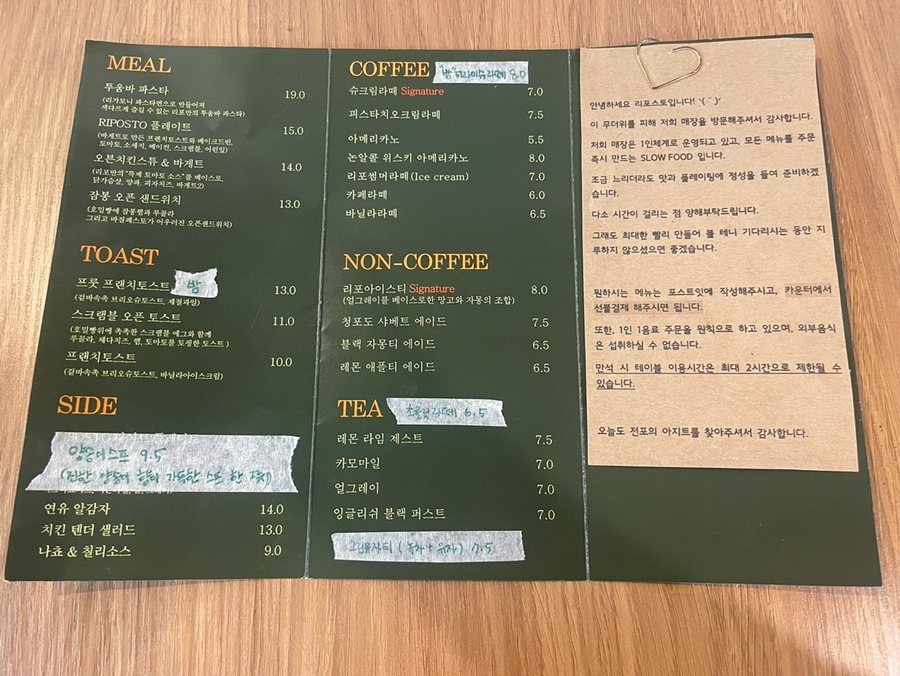 MEAL
투움바 파스타 19.0
(리가토니 파스타면으로 만들어져
색다르게 즐길 수 있는 리포만의 투움바 파스타)
RIPOSTO 플레이트 15.0
(바게트로 만든 프랜치토스트와 베이크드빈,
토마토, 소세지, 베이컨, 스크램블, 어린잎)
오븐치킨스튜 & 바게트 14.0
(리포만의 "특제 토마토 소스"를 베이스로,
닭가슴살, 양파, 피자치즈, 바게트2)
잠봉 오픈 샌드위치 13.0
(호밀빵에 잠봉햄과 루꼴라
그리고 바질페스토가 어우러진 오픈샌드위치)
TOAST
프룻 프랜치토스트 밤 13.0
(겉바속촉 브리오슈토스트, 제철과일)
스크램블 오픈 토스트 11.0
(호밀빵위에 촉촉한 스크램블 에그와 함께
루꼴라, 체다치즈, 햄, 토마토를 토핑한 토스트)
프랜치토스트 10.0
(겉바속촉 브리오슈토스트, 바닐라아이스크림)
SIDE
양송이스프 9.5
(진한 양송이 향이 가득한 스프 한 접시)
연유 알감자 14.0
치킨 텐더 샐러드 13.0
나쵸 & 칠리소스 9.0
COFFEE 밤 8.0
슈크림라떼 Signature 7.0
피스타치오크림라떼 7.5
아메리카노 5.5
논알콜 위스키 아메리카노 8.0
리포썸머라떼(Ice cream) 7.0
카페라떼 6.0
바닐라라떼 6.5
NON-COFFEE
리포아이스티 Signature 8.0
(얼그레이를 베이스로한 망고와 자몽의 조합)
청포도 샤베트 에이드 7.5
블랙 자몽티 에이드 6.5
레몬 애플티 에이드 6.5
TEA 초콜릿라떼 6.5
레몬 라임 제스트 7.5
카모마일 7.0
얼그레이 7.0
잉글리쉬 블랙 퍼스트 7.0
그린유자티 (녹차 + 유자) 7.5
안녕하세요 리포스토입니다!
이 무더위를 피해 저희 매장을 방문해주셔서 감사합니다.
저희 매장은 1인체계로 운영되고 있고, 모든 메뉴를 주문
즉시 만드는 SLOW FOOD 입니다.
조금 느리더라도 맛과 플레이팅에 정성을 들여 준비하겠
습니다.
다소 시간이 걸리는 점 양해부탁드립니다.
그래도 최대한 빨리 만들어 볼 테니 기다리시는 동안 지
루하지 않으셨으면 좋겠습니다.
원하시는 메뉴는 포스트잇에 작성해주시고, 카운터에서
선불결제 해주시면 됩니다.
또한, 1인 1음료 주문을 원칙으로 하고 있으며, 외부음식
은 섭취하실 수 없습니다.
만석 시 테이블 이용시간은 최대 2시간으로 제한될 수
있습니다.
오늘도 전포의 아지트를 찾아주셔서 감사합니다.